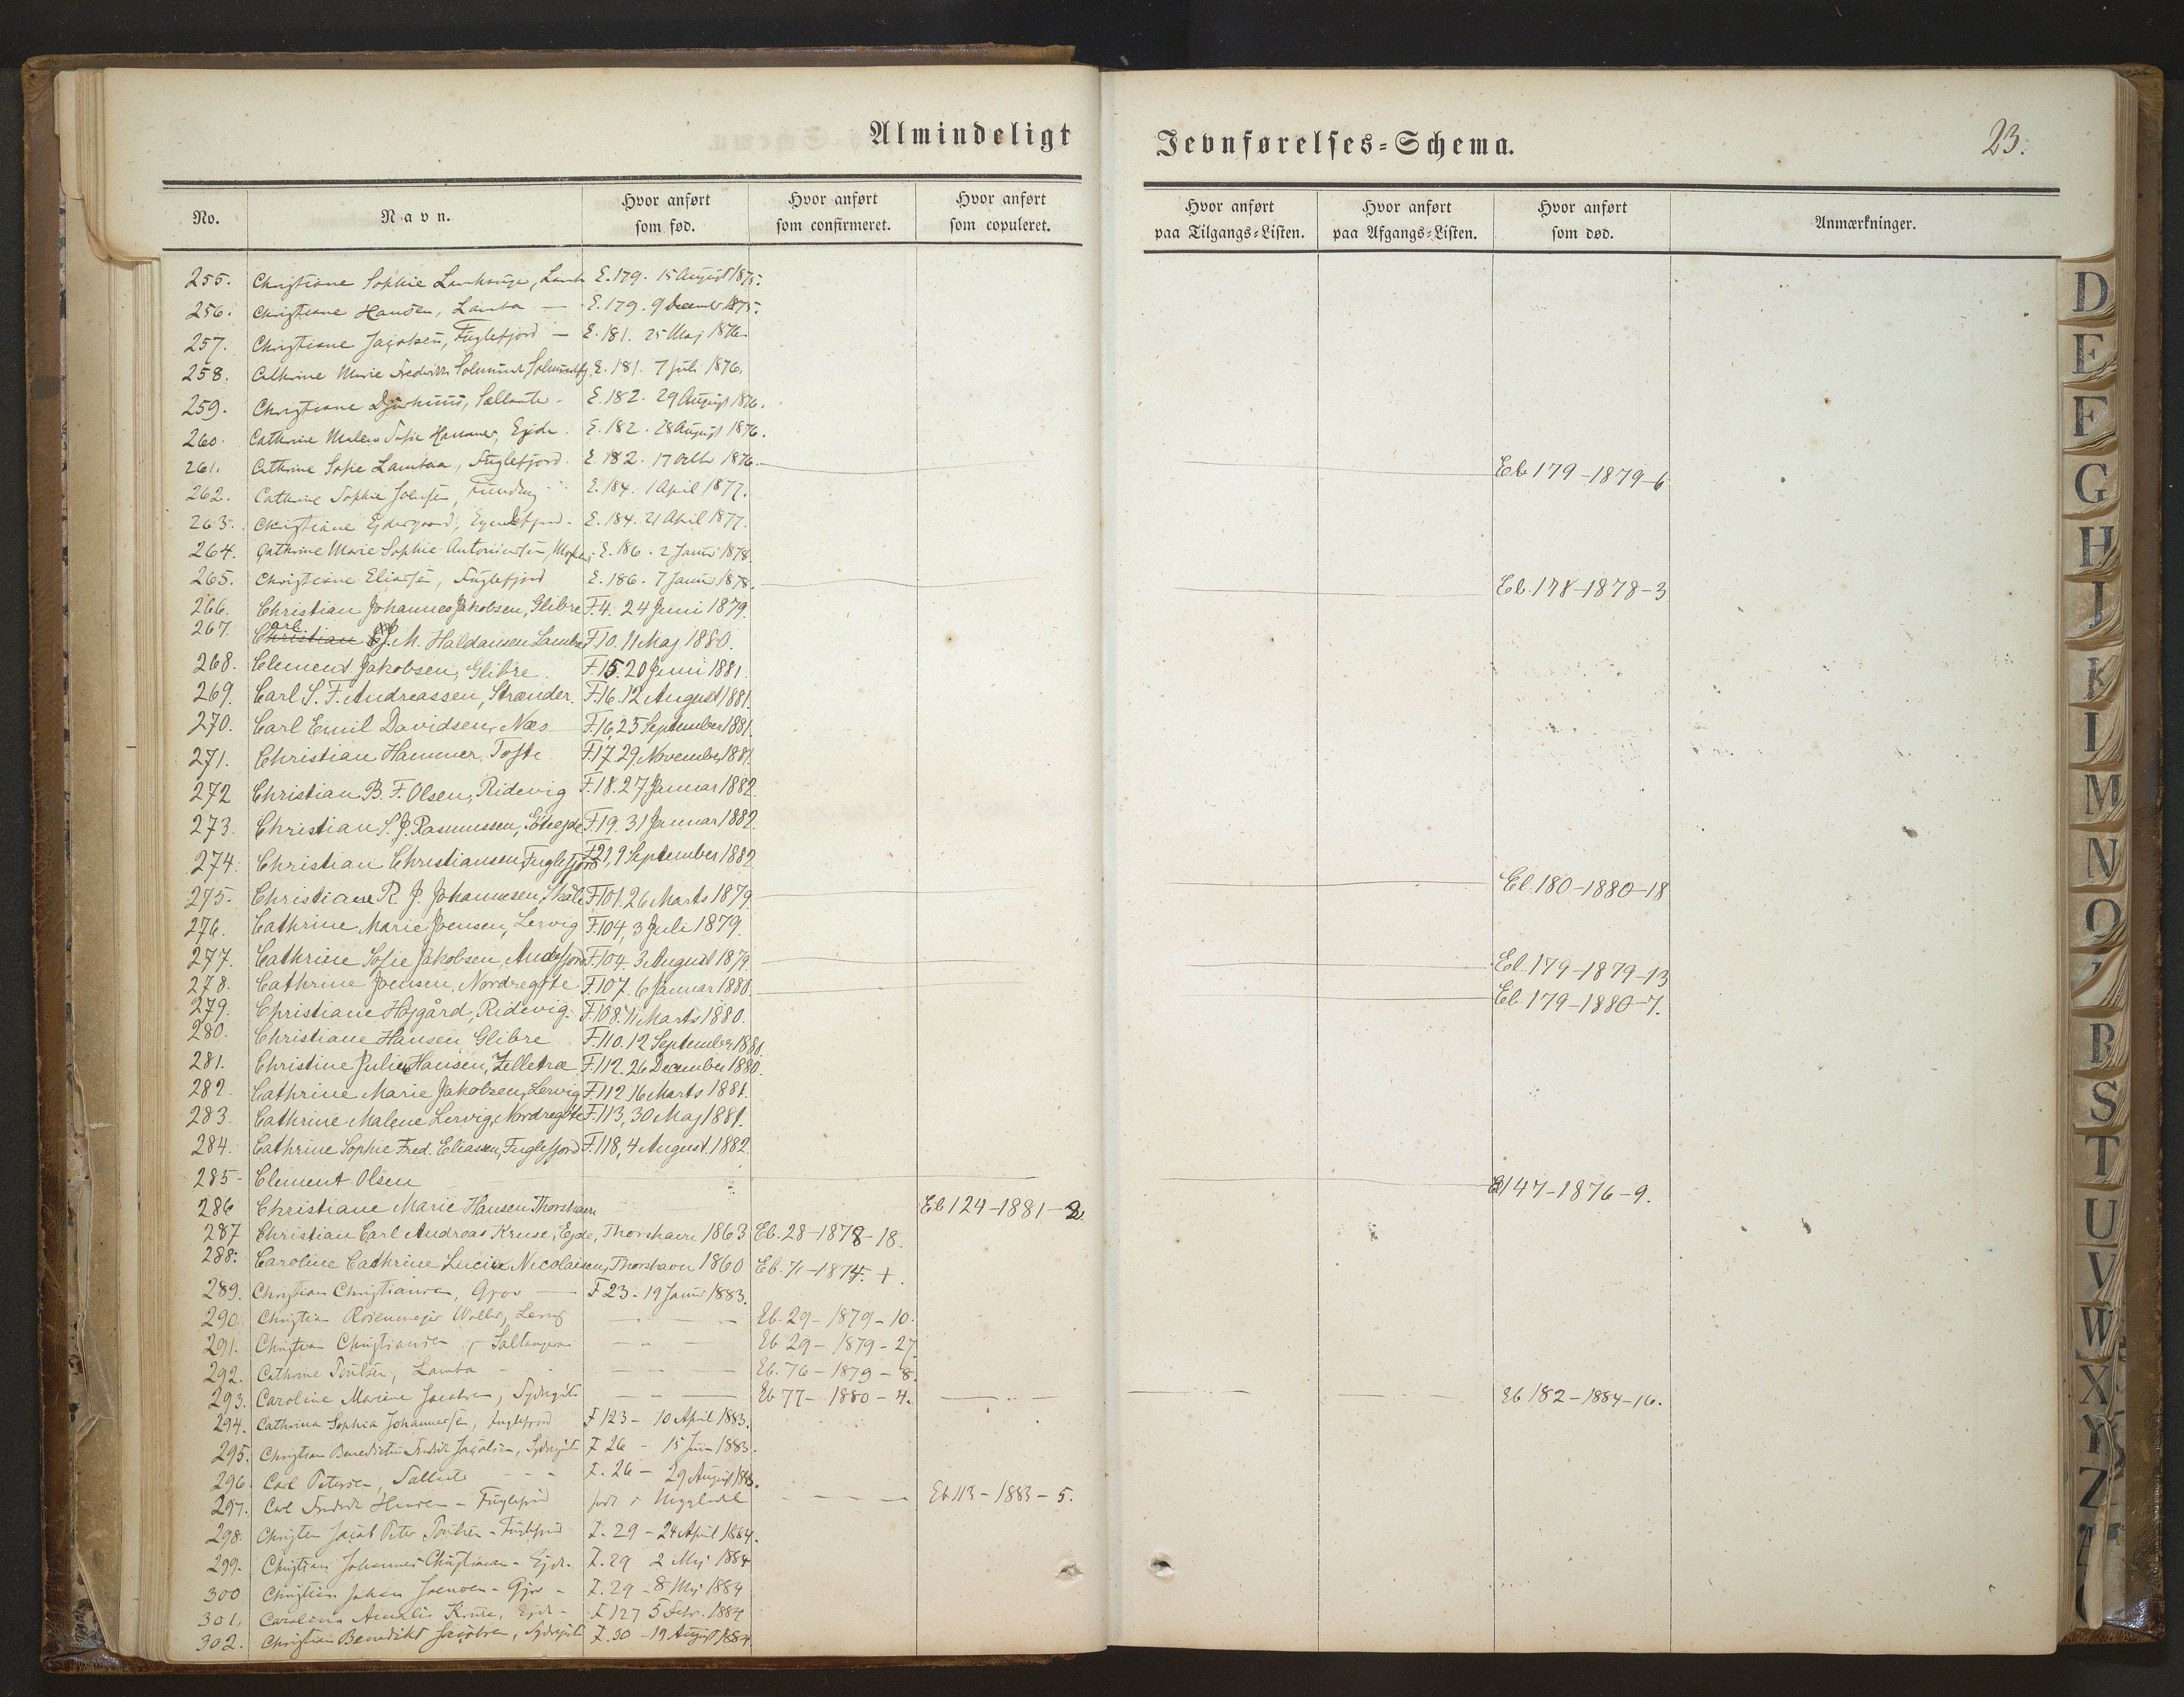 Almindeligt Jevnførelses=Schema. 23.
No. Navn. Hvor anført som fød. Hvor anført som confirmeret. Hvor anført som copuleret. Hvor anført paa Tilgangs=Listen. Hvor anført paa Afgangs=Listen. Hvor anført som død. Anmærkninger.
255. Christiane Sophie Lamhauge, Lamb E. 179. 15 August 1875.
256. Christiane Hansen, Lamba — E. 179. 9 December 1875.
257. Christiane Jacobsen, Fuglefjord — E. 181. 25 Maj 1876.
258. Cathrine Marie Fredrikke E. 181. 7 Juli 1876.
259. Christiane E. 182. 29 August 1876.
260. Cathrine Malene Sofie Hammer, Ejde. E. 182. 28 August 1876.
261. Cathrine Sofie Lambaa, Fuglefjord. E. 182. 17 Octbr 1876. Eb 179-1879-6
262. Cathrine Sophie Joensen, Funding E. 184. 1 April 1877.
263. Christiane Ejdesgaard, E. 184. 21 April 1877.
264. Cathrine Marie Sophie Antoniusen, E. 186. 2 Januar 1878.
265. Christiane Eliasen, Fuglefjord E. 186. 7 Januar 1878. Eb. 178-1878-3
266. Christian Johannes Jakobsen, Glibre F. 4. 24 Juni 1879.
267. Carl J. M. Haldansen Lamba F. 10. 11 Maj 1880.
268. Clement Jakobsen, Glibre. F. 15. 20 Juni 1881.
269. Carl S. F. Andreassen, Strænder. F. 16. 12 August 1881.
270. Carl Emil Davidsen, Næs F. 16, 25 September 1881.
271. Christian Hammer, Tofte F. 17. 29. November 1881.
272 Christian B. F. Olsen, Ridevig F. 18. 27. Januar 1882.
273. Christian S. J. Rasmussen, Göteejde F. 19. 31 Januar 1882.
274. Christian Christiansen, Fuglefjord F. 21, 9 September 1882
275. Christiane R. J. Johannesen, Skåle F. 101. 26 Marts 1879. Eb. 180-1880-18
276. Cathrine Marie Joensen, Lervig F. 104, 3 Juli 1879.
277. Cathrine Sofie Jakobsen, Andefjord F. 104. 3 August 1879. Eb. 179-1879-13
278. Cathrine Joensen, Nordregøte F. 107. 6 Januar 1880. Eb. 179-1880-7.
279. Christiane Højgård, Ridevig. F. 108. 11 Marts 1880.
280. Christiane Hansen Glibre F. 110. 12 September 1880.
281. Christine Julie Hansen, Zelletræ F. 112. 26 December 1880.
282. Cathrine Marie Jakobsen, Lervig F. 112 16 Marts 1881.
283. Cathrine Malene Lervig, Nordregøte F. 113, 30 Maj 1881.
284. Cathrine Sophie Fred. Eliasen, Fuglefjord F. 118, 4 August 1882.
285- Clement Olsen 147-1876-9.
286 Christiane Marie Hansen Thorshavn Eb 124-1881-2
287 Christian Carl Andreas Kruse, Ejde, Thorshavn 1863 Eb. 28-1878-18.
288. Caroline Cathrine Lucie Nicolaisen, Thorshavn 1860 Eb. 71-1874. +.
289. Christian Christiansen, Gjov — F 23 - 19 Januar 1883.
290. Christian Rosenmejer Weller, Lervig Eb. 29 - 1879 - 10.
291. Christian Christiansen, Saltangara Eb 29 - 1879 - 27.
292. Cathrine Poulsen, Lamba Eb. 76 - 1879 - 8.
293. Caroline Marine Jacobsen, Sydregöte Eb 77 - 1880 - 4. Eb 182 - 1884-16.
294. Cathrina Sophia Johannesen, Fuglefjord F 123 - 10 April 1883.
295. Christian Benedictus Fredrik Jacobsen, Sydregöte F 26 - 15 Juni 1883.
296. Carl Petersen, F. 26 - 29 August 1883.
297. Carl Fredrik Hansen - Fuglefjord født i Eb 113 - 1883 - 5.
298. Christen Jacob Peter Poulsen - Fuglefjord F. 29 - 24 April 1884.
299. Christian Johannes Christiansen - Ejde. F. 29 2 Maj 1884
300 Christian Johan Joensen - Gjov - F. 29 - 8 Maj 1884
301. Carolina Amalie Kruse, Ejde - F 127 5 Febr. 1884
302. Christian Benedikt Jacobsen, Sydregöte F. 30 - 19 August 1884
D
E
F
G
H
J
K
L
M
N
O
R
S
T
U
V
W
X
Y
Z